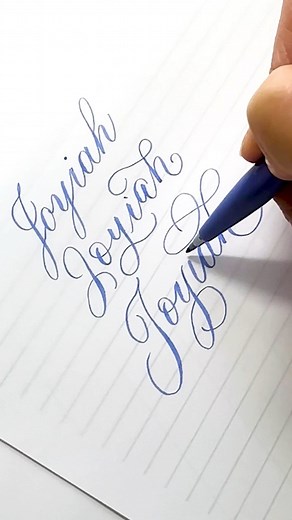 Joyiah
Joyiah
Joyiah